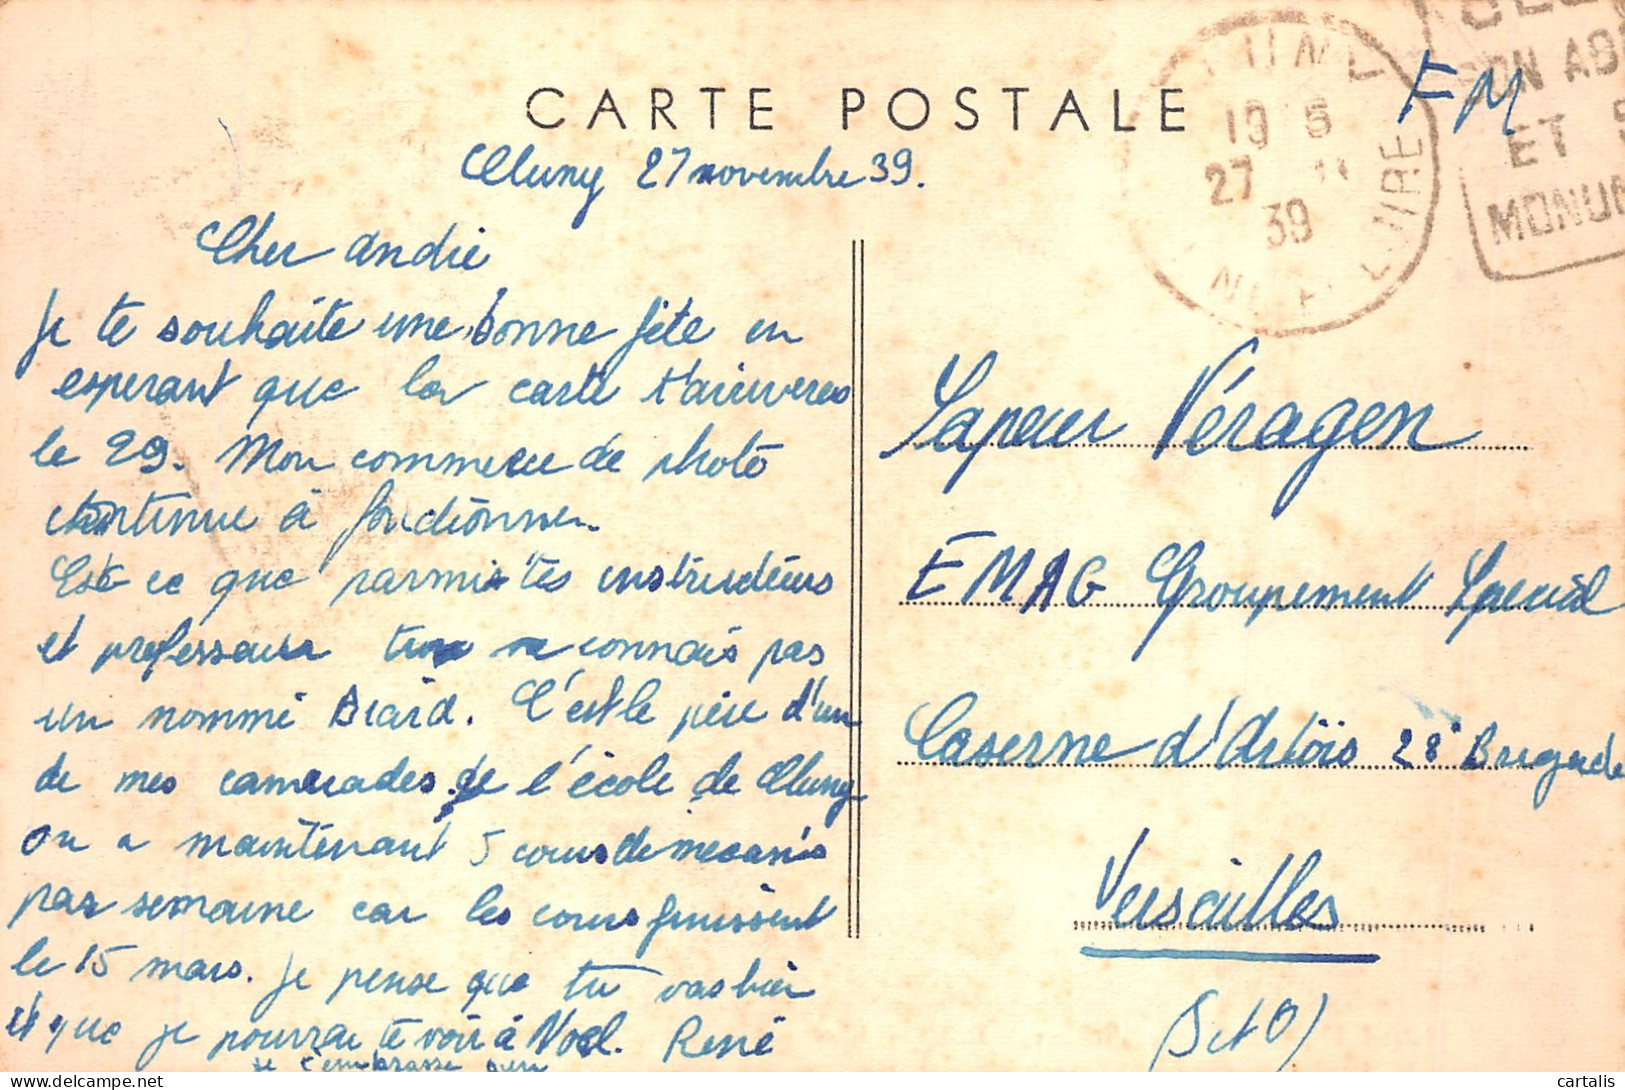 CARTE POSTALE
FM
19 5
27 11
39
LOIRE
ET
MONU
Cluny 27 novembre 39.
Cher André
Je te souhaite une bonne fête en
esperant que la carte t'arriveras
le 29. Mon commerce de photo
continue à fonctionner.
Est ce que parmis tes instructeurs
et professeurs tu ne connais pas
un nommé Biard. C'est le père d'un
de mes camarades de l'école de Cluny
On a maintenant 5 cours de mecanis
par semaine car les cours finissent
le 15 mars. Je pense que tu vas bien
et que je pourrai te voir à Noel. René
je t'embrasse
Sapeur Véragen
EMAG Groupement Special
Caserne d'Artois 28e Brigade
Versailles
(S et O)
CARTALIS
delcampe.net